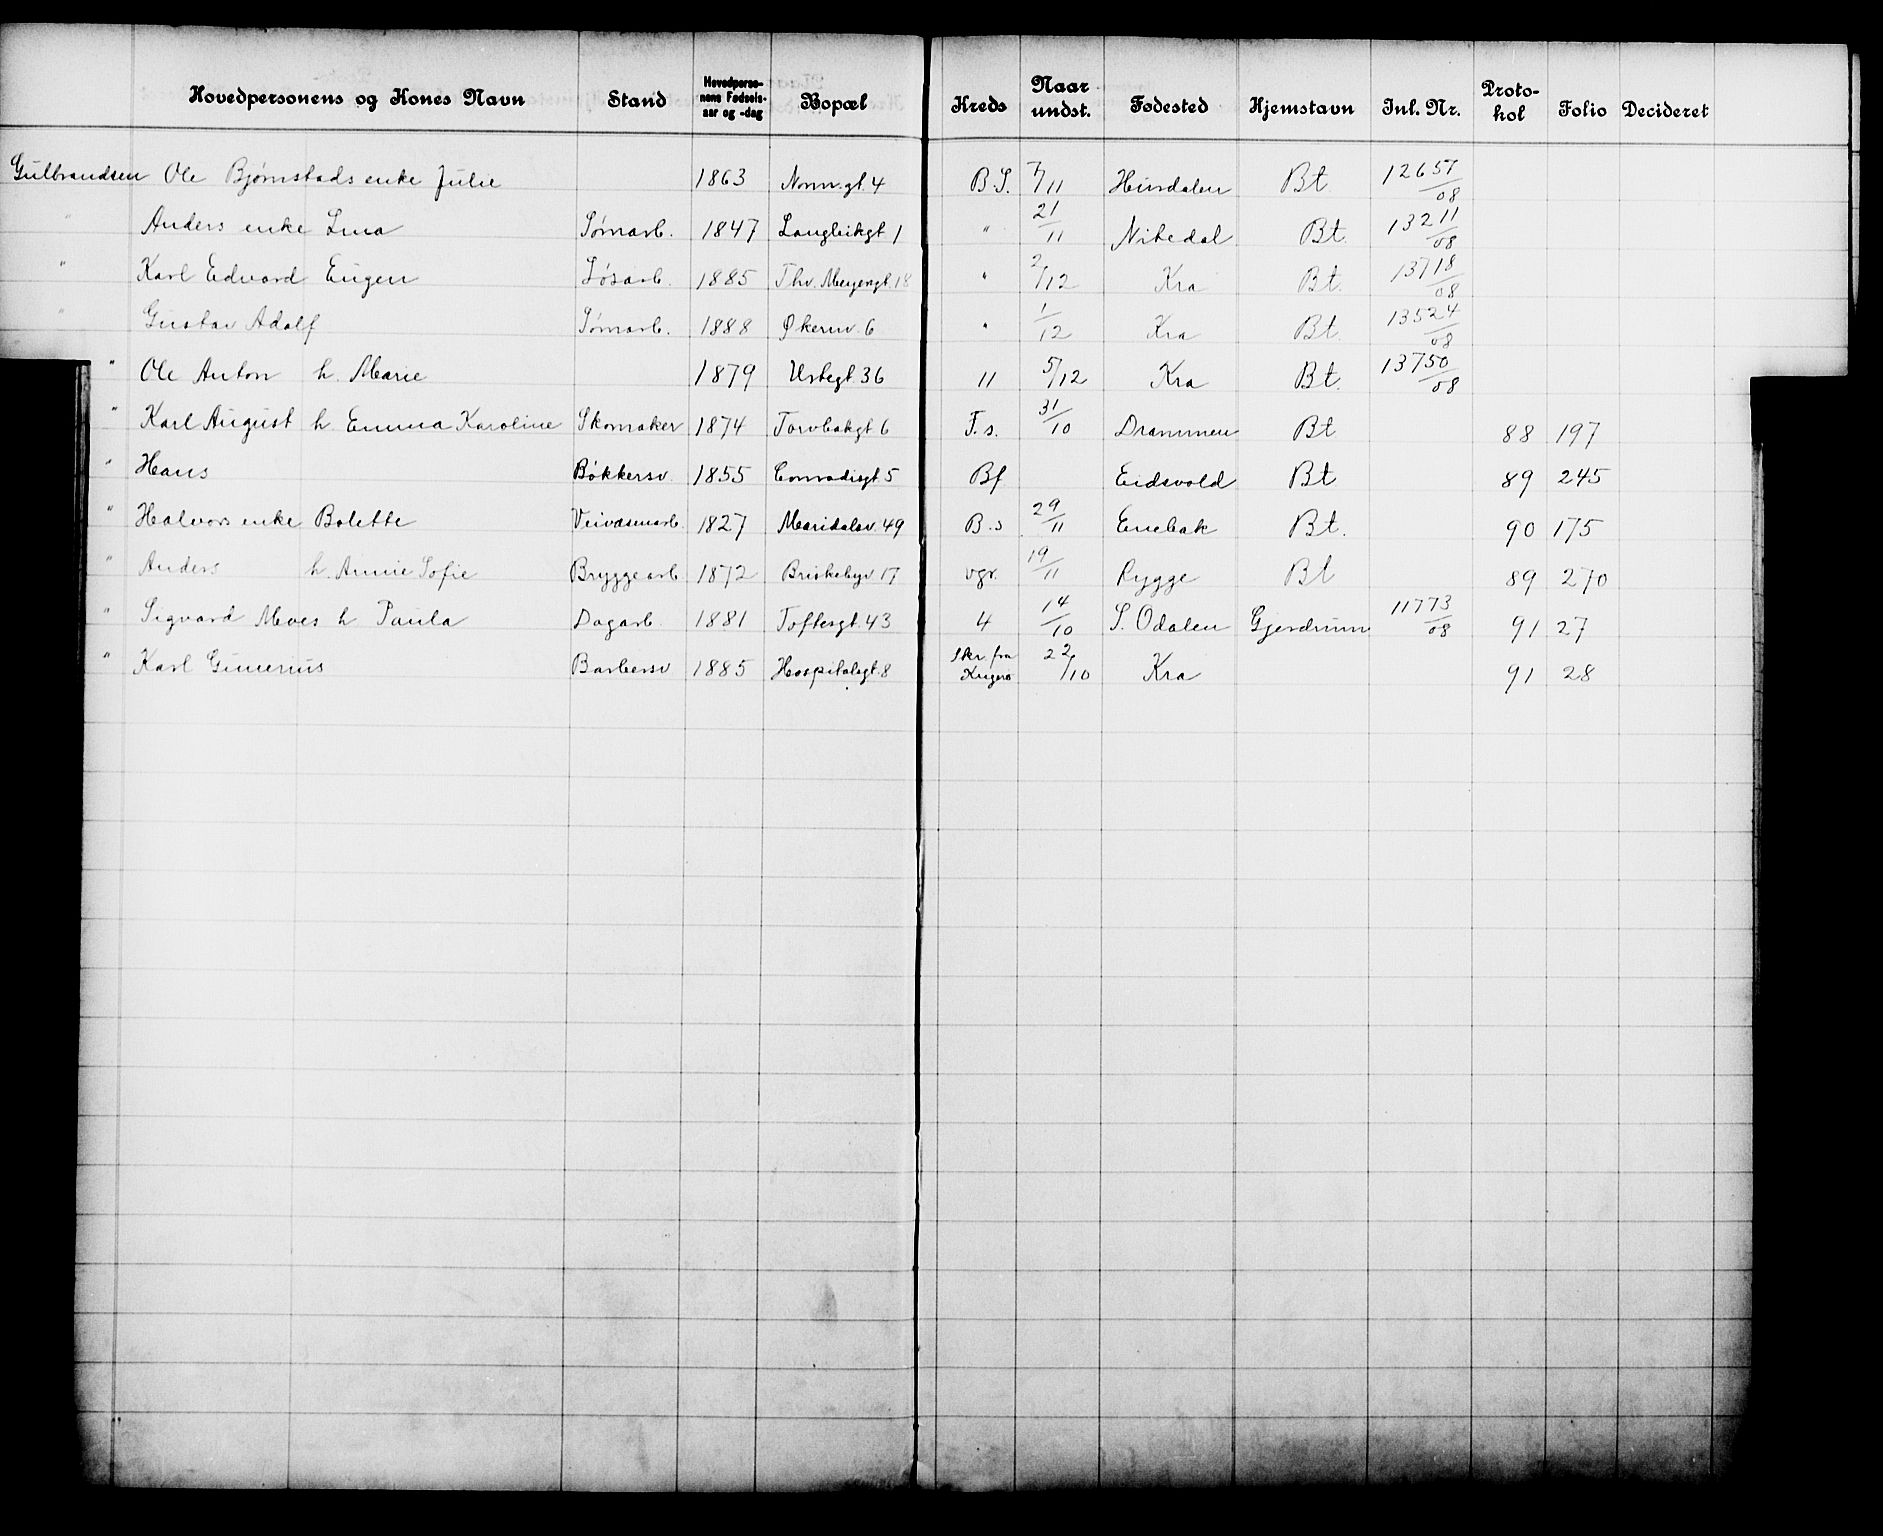 Hovedpersonens og Kones Navn Stand Hovedperso- nens Fødsels- aar og -dag Bopæl Kreds Naar undst. Fødested Hjemstavn Inl. Nr. Proto- kol Folio Decideret
Gulbrandsen Ole Bjørnstads enke Julie 1863 Norm.gt 4 B.S. 7/11 Hurdalen Bt 12657/08
" Anders enke Lina Sømarb. 1847 Langleikgt 1 " 21/11 Nitedal Bt. 13211/08
" Karl Edvard Eugen Løsarb. 1885 Thv. Meyersgt. 18 " 2/12 Kra Bt. 13718/08
" Gustav Adolf Sømarb. 1888 Økernv. 6 " 1/12 Kra Bt. 13524/08
" Ole Anton h. Marie 1879 Urtegt 36 11 5/12 Kra Bt. 13750/08
" Karl August h Emma Karoline Skomaker 1874 Torvbakgt 6 F.s. 31/10 Drammen Bt 88 197
" Hans Bøkkersv. 1855 Conradisgt 5 Bf Eidsvold Bt 89 245
" Halvors enke Bolette Veivæsenarb. 1827 Maridalsv. 49 B.s 29/11 Enebak Bt. 90 175
" Anders h. Annie Sofie Bryggearb 1872 Briskebyv 17 vgr. 19/11 Rygge Bt 89 270
" Sigvard Moes h Paula Dagarb. 1881 Toftesgt. 43 4 14/10 S. Odalen Gjerdrum 11773/08 91 27
" Karl Gunerius Barbersv 1885 Hospitalsgt. 8 Skr. fra Kragerø 22/10 Kra 91 28